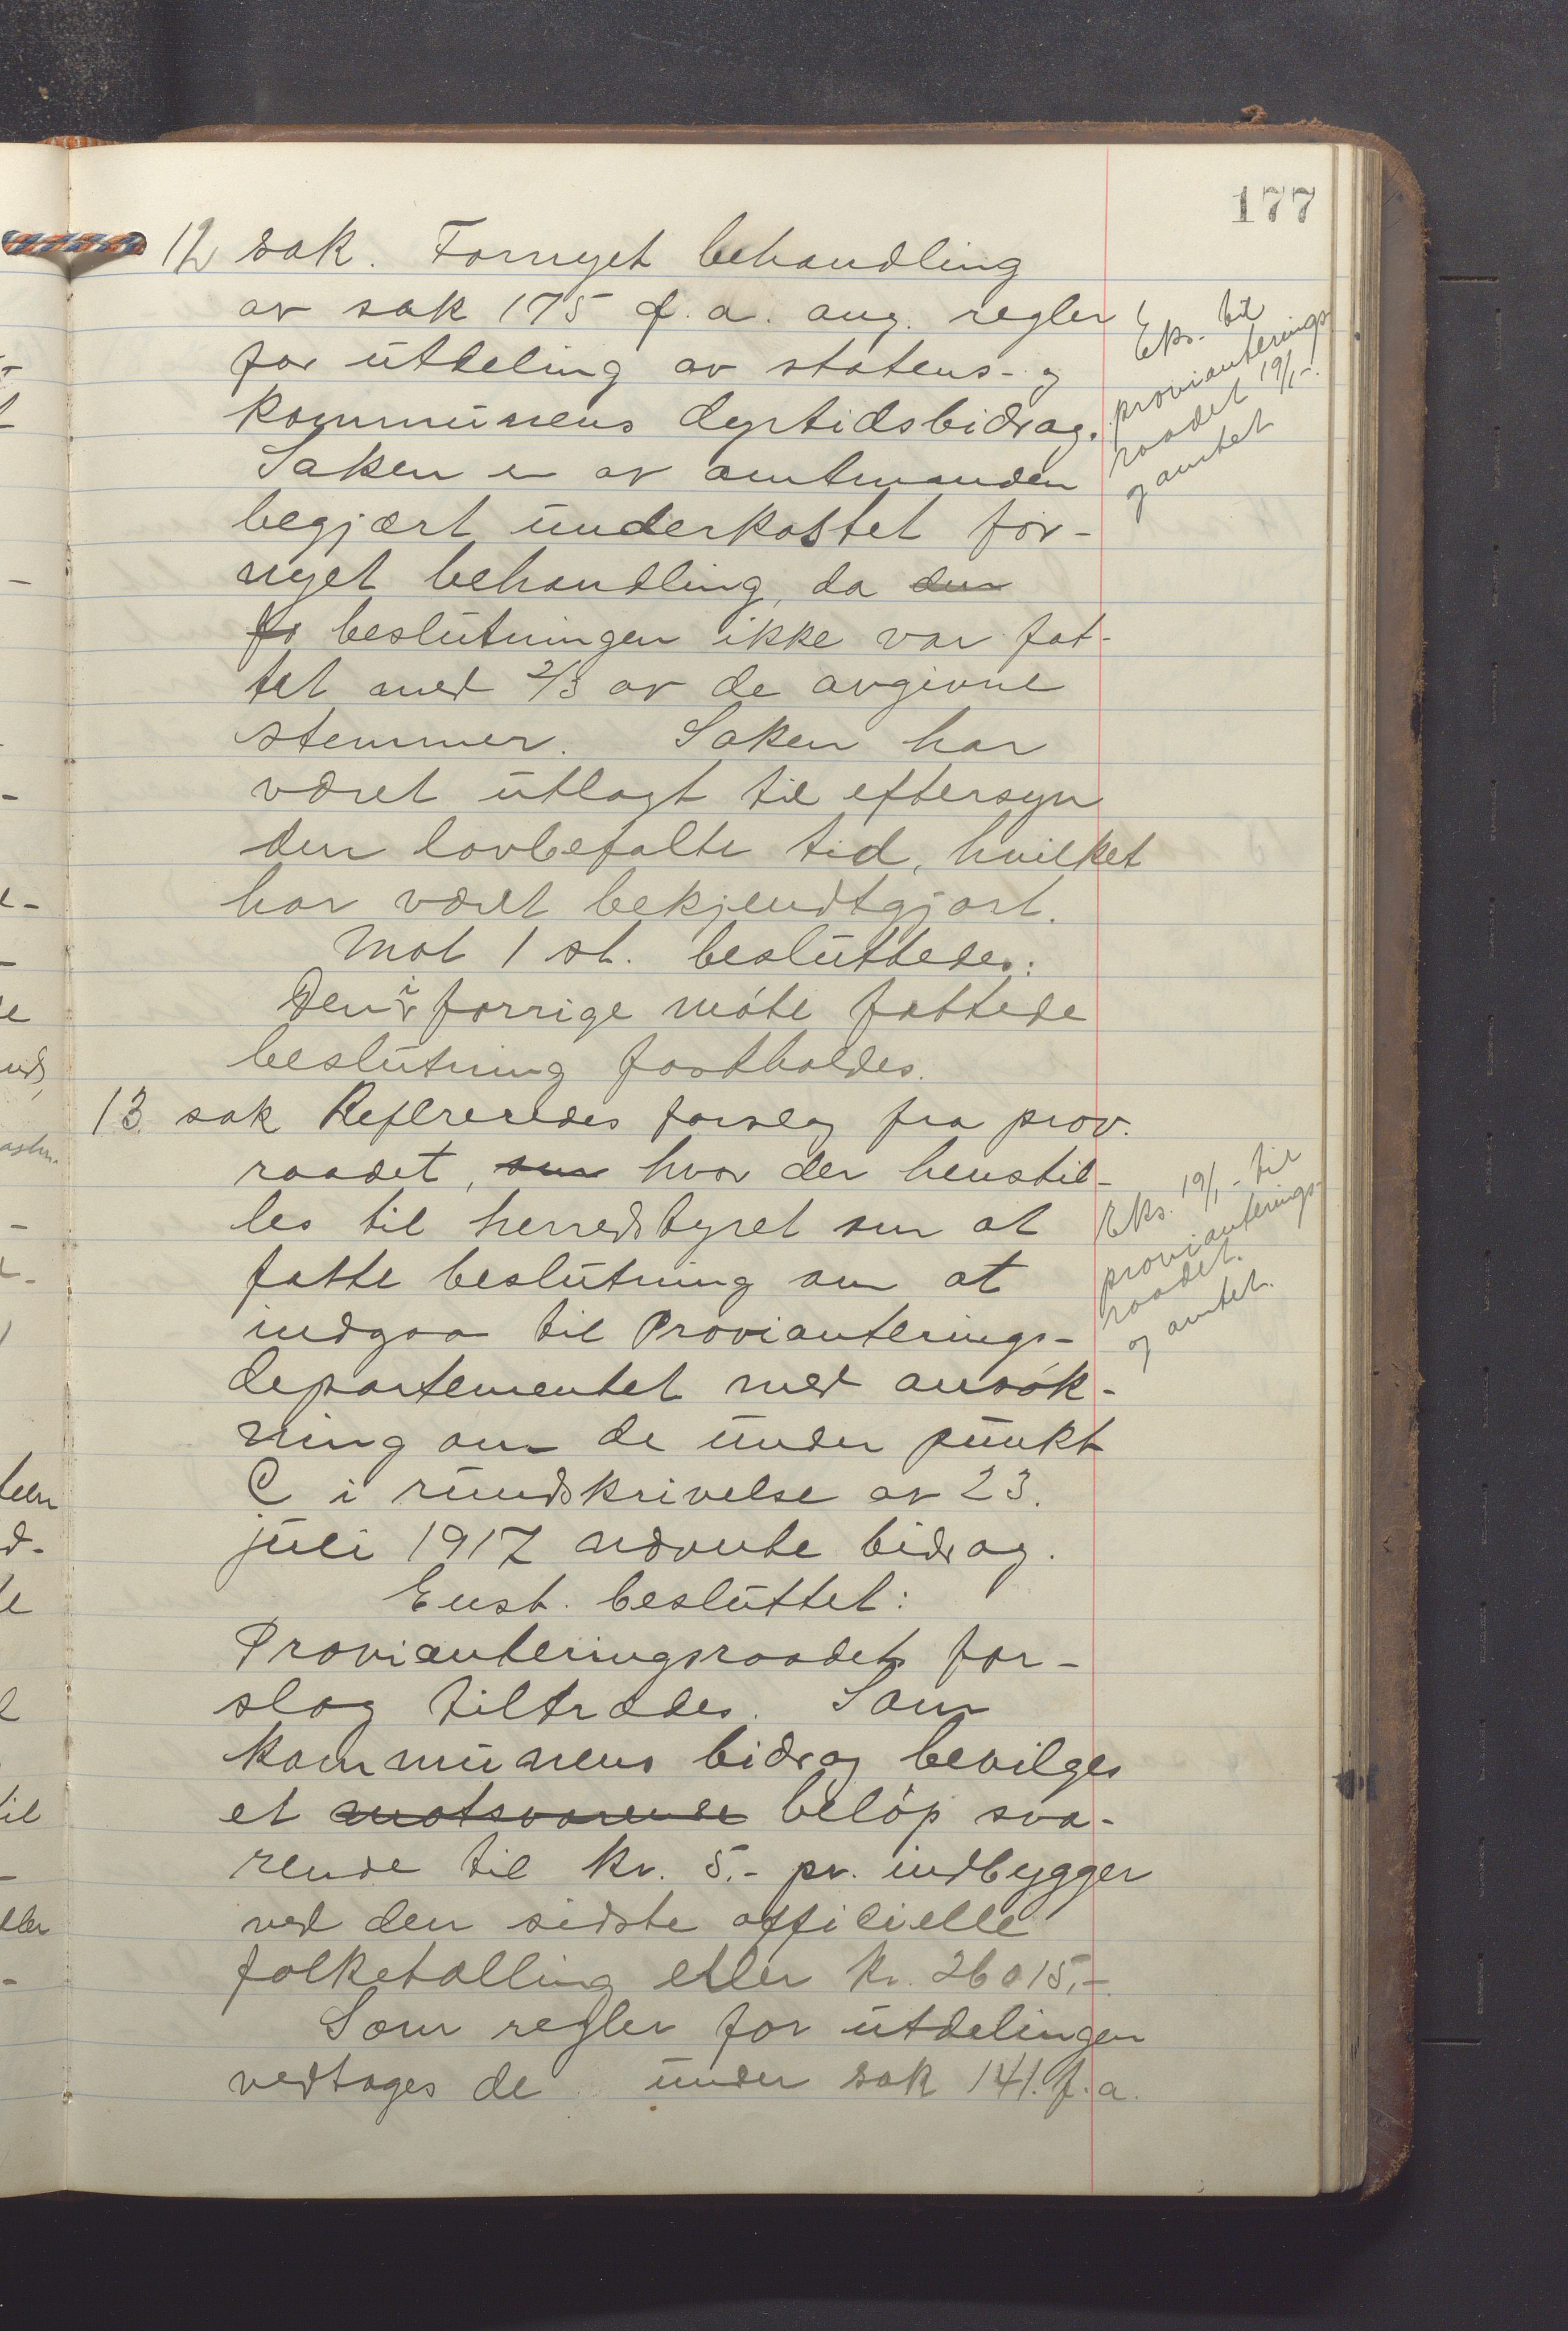 177
12 sak. Fornyet behandling
av sak 175 f. a. ang. regler
for utdeling av statens- og
kommunens dyrtidsbidrag.
Eks. til
provianterings-
raadet 19/1-.
og amtet
Saken er av amtmanden
begjært underkastet for-
nyet behandling, da den
fo beslutningen ikke var fat-
tet med 2/3 av de avgivne
stemmer. Saken har
været utlagt til eftersyn
den lovbefalte tid, hvilket
har været bekjendtgjort.
Mot 1 st. besluttedes:
Den i forrige møte fattede
beslutning fastholdes.
13. sak Refereredes forslag fra prov.
raadet, som hvor der henstil-
les til herredstyret om at
fatte beslutning om at
indgaa til Provianterings-
departementet med ansøk-
ning om de under punkt
C i rundskrivelse av 23.
juli 1917 nævnte bidrag.
Eks. 19/1- til
provianterings-
raadet.
og amtet.
Enst. besluttet:
Provianteringsraadets for-
slag tiltrædes. Som
kommunens bidrag bevilges
et motsvarende beløp sva-
rende til kr. 5.- pr. indbygger
ved den sidste officielle
folketælling eller kr. 26015,-.
Som regler for utdelingen
vedtages de under sak 141. f. a.